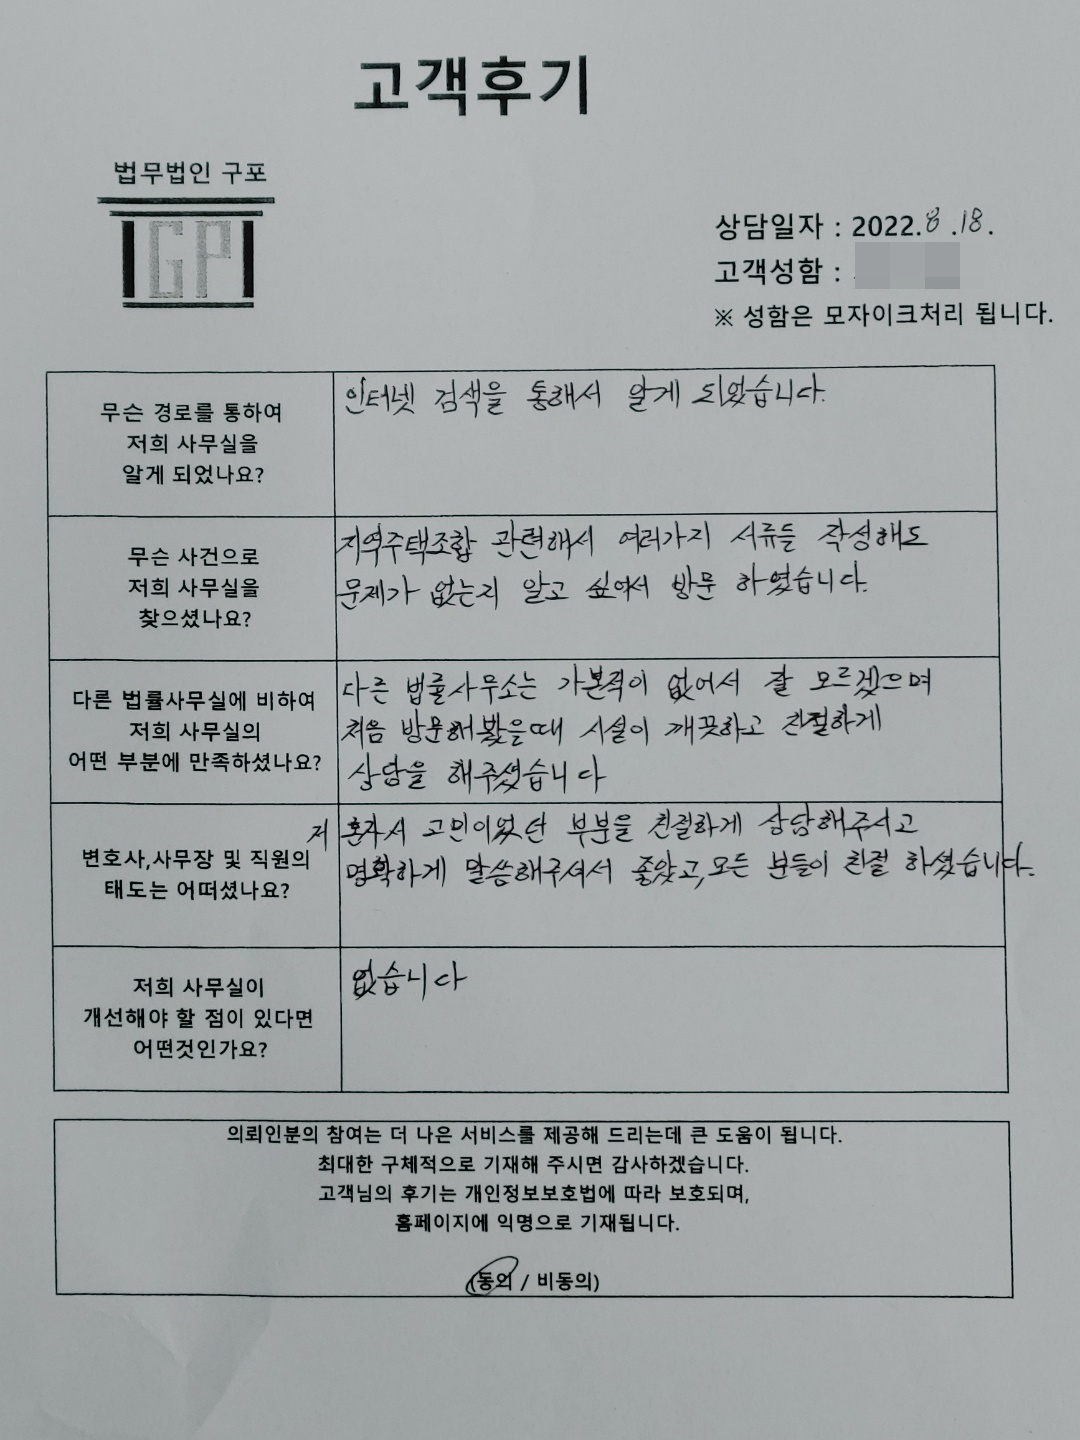 고객후기
법무법인 구포
GP
상담일자 : 2022.8.18.
고객성함 :
※ 성함은 모자이크처리 됩니다.
무슨 경로를 통하여
저희 사무실을
알게 되었나요?
인터넷 검색을 통해서 알게 되었습니다.
무슨 사건으로
저희 사무실을
찾으셨나요?
지역주택조합 관련해서 여러가지 서류들 작성해도
문제가 없는지 알고 싶어서 방문 하였습니다.
다른 법률사무실에 비하여
저희 사무실의
어떤 부분에 만족하셨나요?
다른 법률사무소는 가본적이 없어서 잘 모르겠으며
처음 방문해봤을때 시설이 깨끗하고 친절하게
상담을 해주셨습니다
변호사,사무장 및 직원의
태도는 어떠셨나요?
저 혼자서 고민이었던 부분을 친절하게 상담해주시고
명확하게 말씀해주셔서 좋았고, 모든 분들이 친절 하셨습니다.
저희 사무실이
개선해야 할 점이 있다면
어떤것인가요?
없습니다
의뢰인분의 참여는 더 나은 서비스를 제공해 드리는데 큰 도움이 됩니다.
최대한 구체적으로 기재해 주시면 감사하겠습니다.
고객님의 후기는 개인정보보호법에 따라 보호되며,
홈페이지에 익명으로 기재됩니다.
(동의 / 비동의)